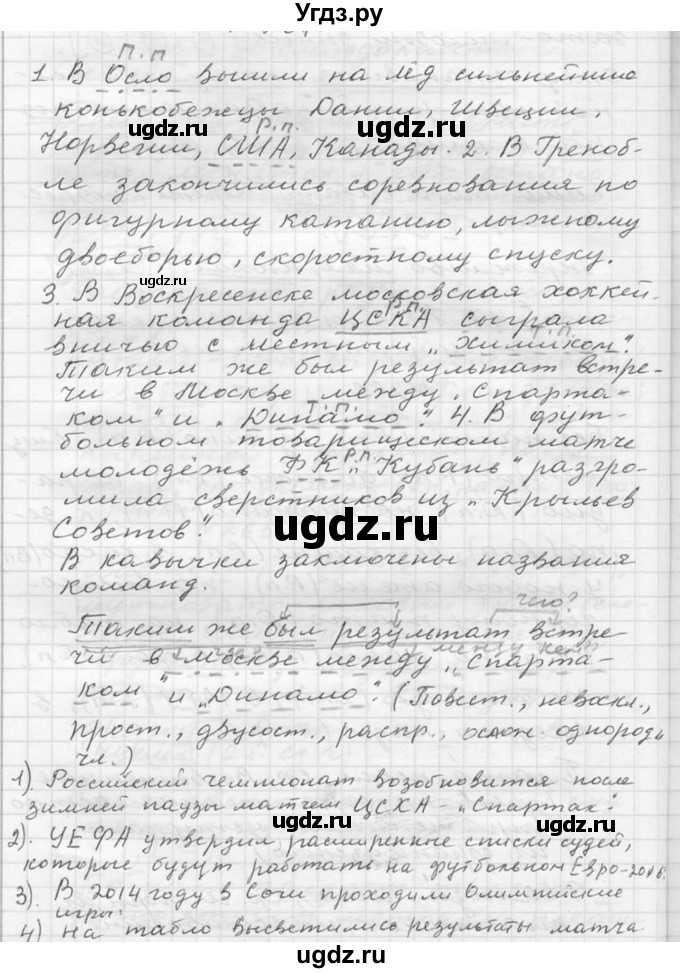 Угдз.ру
П.п
1. В Осло вышли на лёд сильнейшие
конькобежцы Дании, Швеции,
Р.п.
Норвегии, США, Канады. 2. В Греноб-
ле закончились соревнования по
фигурному катанию, лыжному
двоеборью, скоростному спуску.
3. В Воскресенске московская хоккей-
ная команда ЦСКА сыграла
вничью с местным „Химиком".
Таким же был результат встре-
чи в Москве между „Спарта-
ком" и „Динамо". 4. В фут-
больном товарищеском матче
Р.п.
молодёжь ФК „Кубань" разгро-
мила сверстников из „Крыльев
Советов".
В кавычки заключены названия
команд.
чего?
Таким же был результат встре-
между кем?
чи в Москве между „Спарта-
ком" и „Динамо". (Повест., невоскл.,
прост., двусост., распр., ослож. однород.
чл.)
1). Российский чемпионат возобновится после
зимней паузы матчем ЦСКА - „Спартак".
2). УЕФА утвердил расширенные списки судей,
которые будут работать на футбольном Евро-2016.
3). В 2014 году в Сочи проходили Олимпийские
игры.
4) На табло высветились результаты матча.
ugdz.ru
ugdz.ru
ugdz.ru
ugdz.ru
ugdz.ru
ugdz.ru
ugdz.ru
ugdz.ru
ugdz.ru
ugdz.ru
ugdz.ru
ugdz.ru